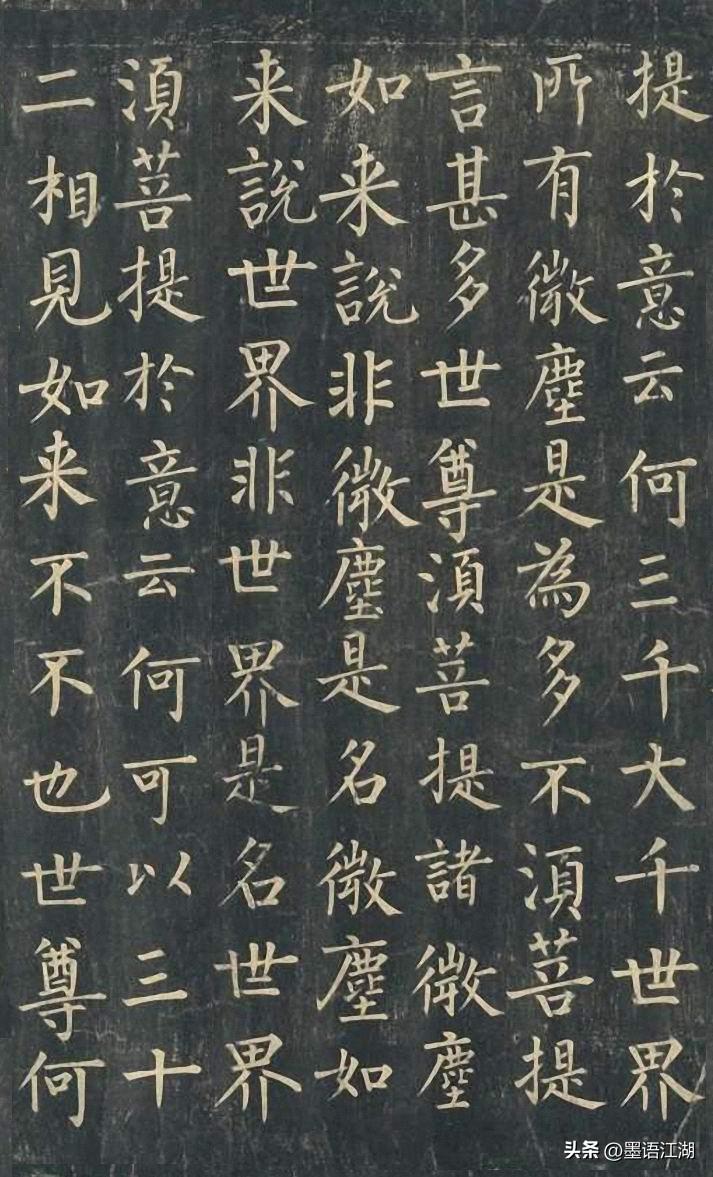 提於意云何三千大千世界
所有微塵是為多不須菩提
言甚多世尊須菩提諸微塵
如来說非微塵是名微塵如
来說世界非世界是名世界
須菩提於意云何可以三十
二相見如来不不也世尊何
头条 @墨语江湖